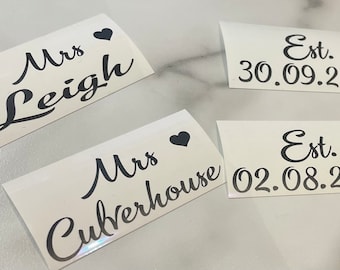 Mrs
Leigh
Est.
30.09.2
Mrs
Culverhouse
Est.
02.08.2